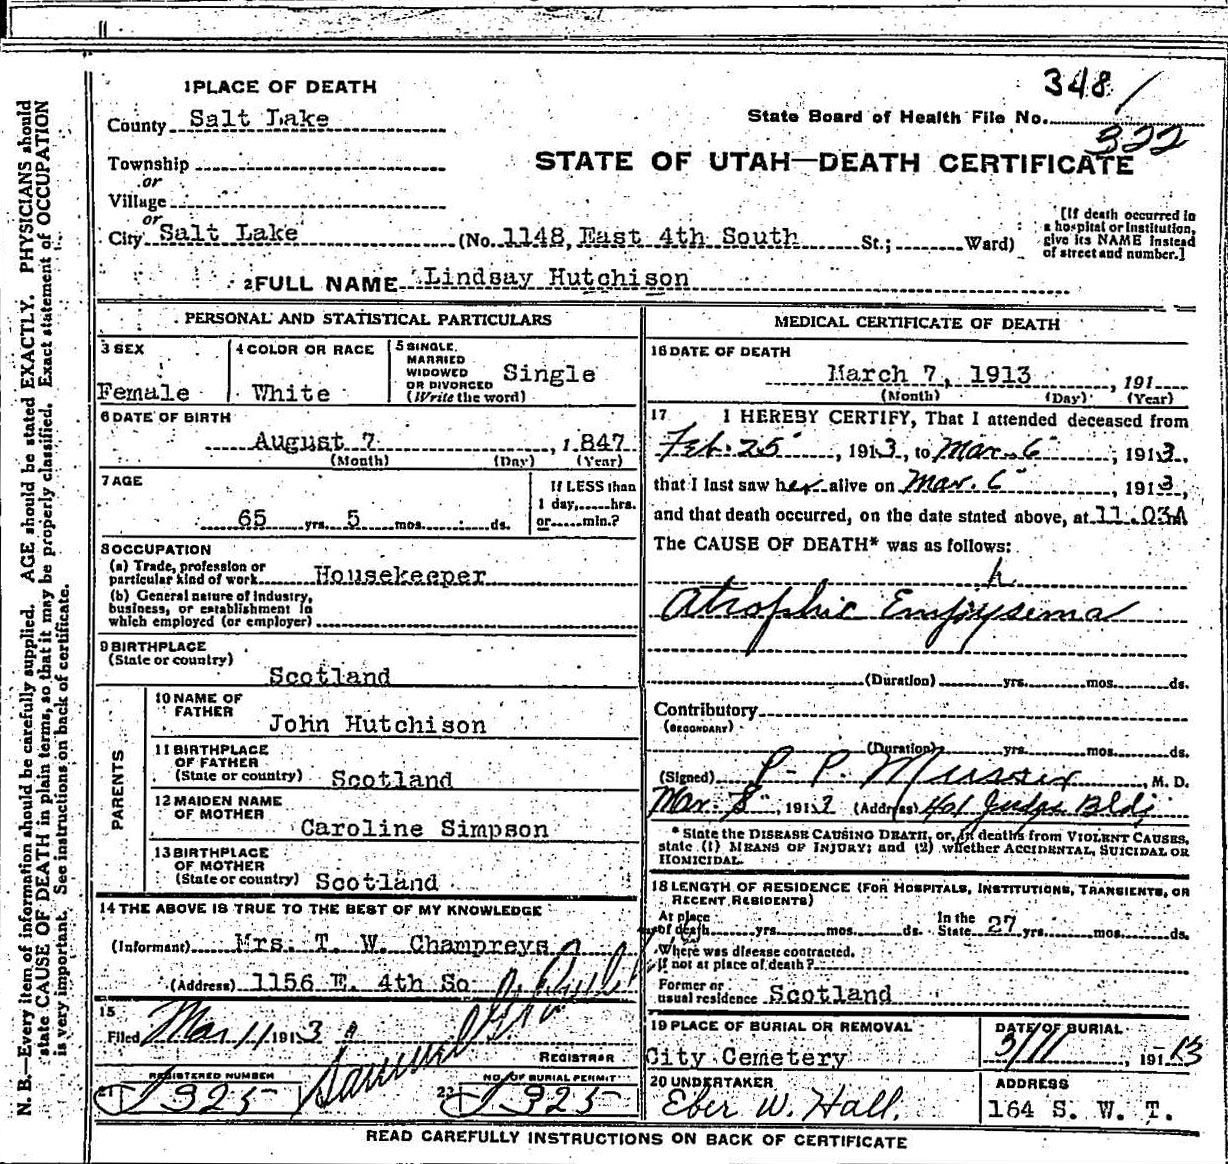 348
1 PLACE OF DEATH
County Salt Lake
State Board of Health File No. 322
Township
or
Village
or
STATE OF UTAH—DEATH CERTIFICATE
City Salt Lake (No. 1148, East 4th South St.; Ward)
[If death occurred in
a hospital or institution,
give its NAME instead
of street and number.]
2 FULL NAME Lindsay Hutchison
PERSONAL AND STATISTICAL PARTICULARS
3 SEX
Female
4 COLOR OR RACE
White
5 SINGLE,
MARRIED
WIDOWED
OR DIVORCED
(Write the word)
Single
6 DATE OF BIRTH
August 7, 1847
(Month) (Day) (Year)
7 AGE
65 yrs. 5 mos. ds.
If LESS than
1 day,......hrs.
or......min.?
8 OCCUPATION
(a) Trade, profession or
particular kind of work Housekeeper
(b) General nature of industry,
business, or establishment in
which employed (or employer)
9 BIRTHPLACE
(State or country)
Scotland
PARENTS
10 NAME OF
FATHER
John Hutchison
11 BIRTHPLACE
OF FATHER
(State or country) Scotland
12 MAIDEN NAME
OF MOTHER
Caroline Simpson
13 BIRTHPLACE
OF MOTHER
(State or country) Scotland
14 THE ABOVE IS TRUE TO THE BEST OF MY KNOWLEDGE
(Informant) Mrs. T. W. Champreys
(Address) 1156 E. 4th So
15
Filed Mar 11 1913
REGISTRAR
REGISTERED NUMBER
21 J 325
NO. OF BURIAL PERMIT
22 J 325
MEDICAL CERTIFICATE OF DEATH
16 DATE OF DEATH
March 7, 1913, 191
(Month) (Day) (Year)
17 I HEREBY CERTIFY, That I attended deceased from
Feb. 25, 1913, to Mar. 6, 1913,
that I last saw her alive on Mar. 6, 1913,
and that death occurred, on the date stated above, at 11.03A m
The CAUSE OF DEATH* was as follows:
h
Atrophic Empysema
(Duration) yrs. mos. ds.
Contributory
(SECONDARY)
(Duration) yrs. mos. ds.
(Signed) P. P. M. D.
Mar. 8, 1913 (Address) 461 Judge Bldg
* State the DISEASE CAUSING DEATH, or, in deaths from VIOLENT CAUSES,
state (1) MEANS OF INJURY; and (2) whether ACCIDENTAL, SUICIDAL OR
HOMICIDAL.
18 LENGTH OF RESIDENCE (FOR HOSPITALS, INSTITUTIONS, TRANSIENTS, OR
RECENT RESIDENTS)
At place
of death yrs. mos. ds.
In the
State 27 yrs. mos. ds.
Where was disease contracted,
if not at place of death?
Former or
usual residence Scotland
19 PLACE OF BURIAL OR REMOVAL
City Cemetery
DATE OF BURIAL
3/11, 1913
20 UNDERTAKER
Eber W. Hall.
ADDRESS
164 S. W. T.
READ CAREFULLY INSTRUCTIONS ON BACK OF CERTIFICATE
N. B.—Every item of information should be carefully supplied. AGE should be stated EXACTLY. PHYSICIANS should
state CAUSE OF DEATH in plain terms, so that it may be properly classified. Exact statement of OCCUPATION
is very important. See instructions on back of certificate.